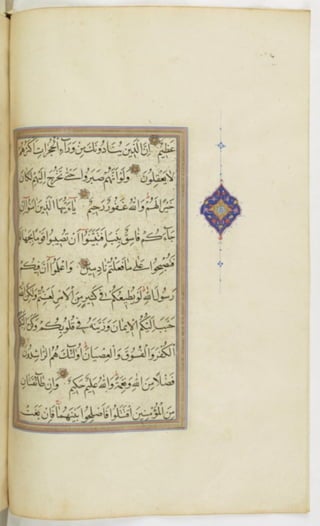 عَظِيمٌ إِنَّ الَّذِينَ يُنَادُونَكَ مِن وَرَاءِ الْحُجُرَاتِ أَكْثَرُهُمْ
لَا يَعْقِلُونَ وَلَوْ أَنَّهُمْ صَبَرُوا حَتَّى تَخْرُجَ إِلَيْهِمْ لَكَانَ
خَيْرًا لَهُمْ وَاللَّهُ غَفُورٌ رَحِيمٌ يَا أَيُّهَا الَّذِينَ آمَنُوا إِن
جَاءَكُمْ فَاسِقٌ بِنَبَإٍ فَتَبَيَّنُوا أَن تُصِيبُوا قَوْمًا بِجَهَالَةٍ
فَتُصْبِحُوا عَلَى مَا فَعَلْتُمْ نَادِمِينَ وَاعْلَمُوا أَنَّ فِيكُمْ
رَسُولَ اللَّهِ لَوْ يُطِيعُكُمْ فِي كَثِيرٍ مِنَ الْأَمْرِ لَعَنِتُّمْ وَلَكِنَّ اللَّهَ
حَبَّبَ إِلَيْكُمُ الْإِيمَانَ وَزَيَّنَهُ فِي قُلُوبِكُمْ وَكَرَّهَ إِلَيْكُمُ
الْكُفْرَ وَالْفُسُوقَ وَالْعِصْيَانَ أُولَئِكَ هُمُ الرَّاشِدُونَ
فَضْلًا مِنَ اللَّهِ وَنِعْمَةً وَاللَّهُ عَلِيمٌ حَكِيمٌ وَإِن طَائِفَتَانِ
مِنَ الْمُؤْمِنِينَ اقْتَتَلُوا فَأَصْلِحُوا بَيْنَهُمَا فَإِن بَغَتْ